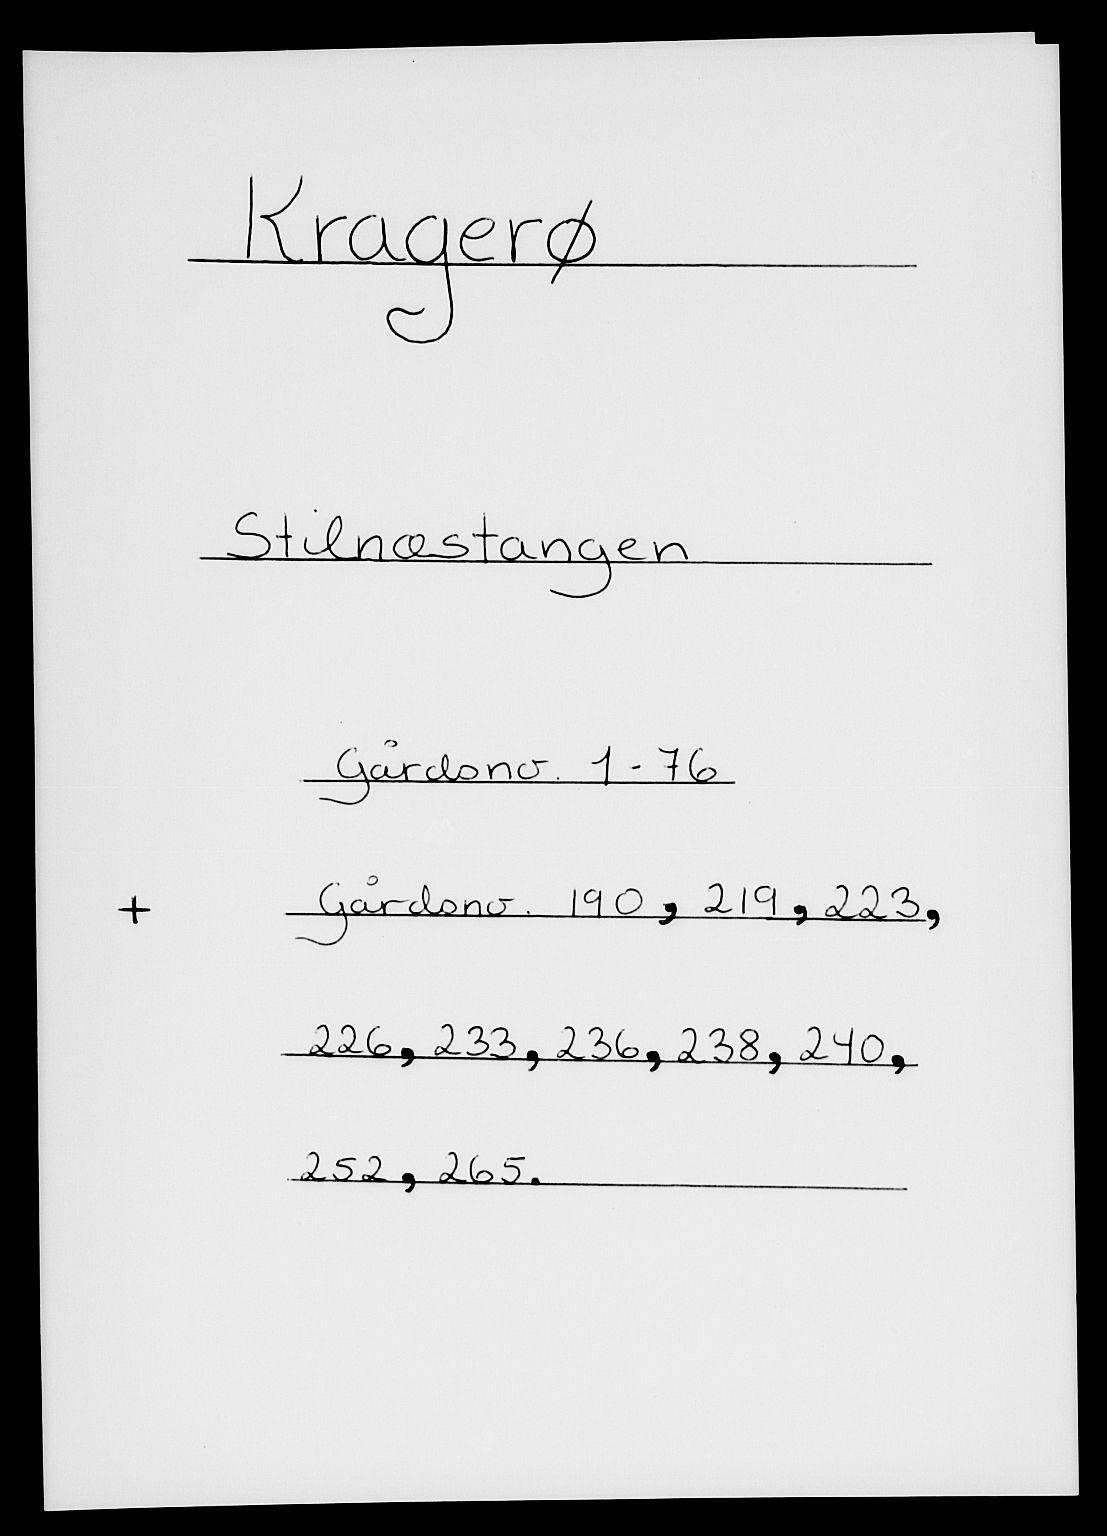 Kragerø
Stilnæstangen
Gårdsno. 1-76
+ Gårdsno. 190, 219, 223,
226, 233, 236, 238, 240,
252, 265.